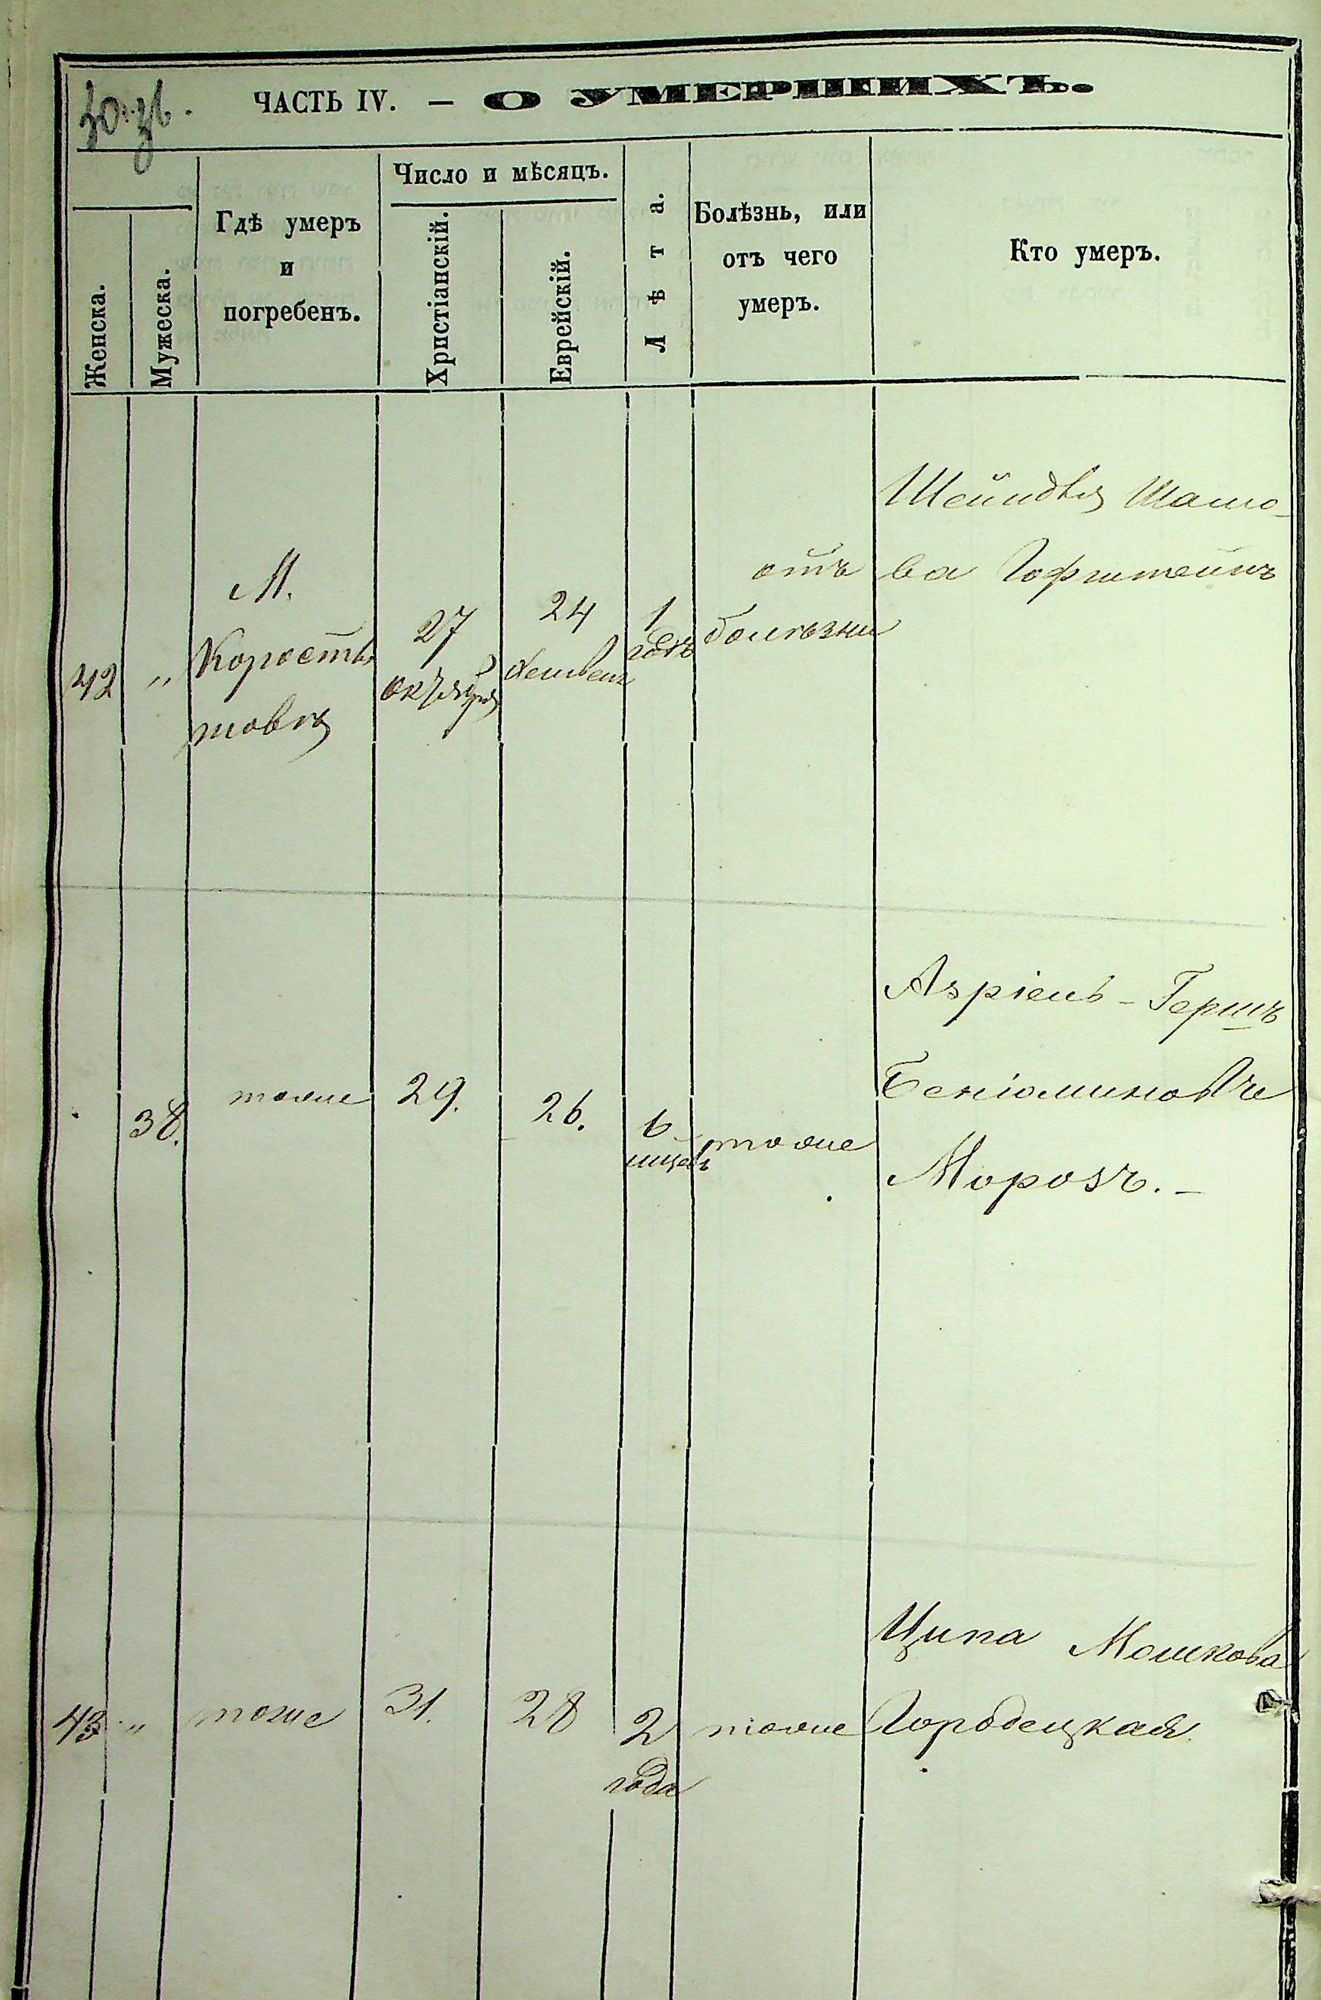 ЧАСТЬ IV. — О УМЕРШИХЪ.
Женска.
Мужеска.
Гдѣ умеръ
и
погребенъ.
Число и мѣсяцъ.
Христіанскій.
Еврейскій.
Лѣта.
Болѣзнь, или
отъ чего
умеръ.
Кто умеръ.
42
"
М.
Коросты
шовѣ
27
октября
24
1
годъ
отъ
болѣзни
Шейндля
ва Гофштейнъ
38.
тоже
29.
26.
6
тоже
Азріель - Гершъ
Беніоминов
Морозъ. -
43
"
тоже
31.
28
2
года
тоже
Ципа Мошкова
Городецкая.